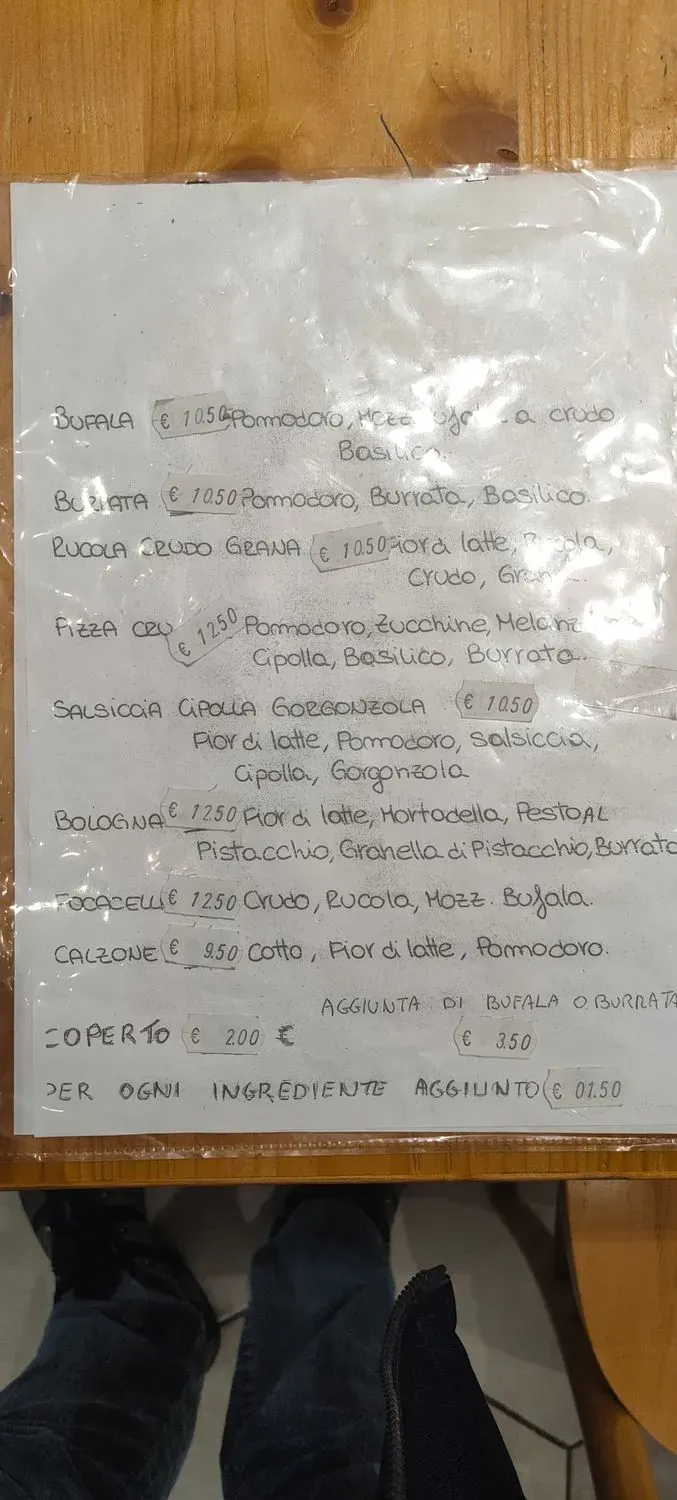 BUFALA € 10.50 Pomodoro, Mozz a crudo
Basilico.
BURRATA € 10.50 Pomodoro, Burrata, Basilico.
RUCOLA CRUDO GRANA € 10.50 Fior di latte, Rucola,
Crudo, Grana
PIZZA CRU € 12.50 Pomodoro, Zucchine, Melanz
Cipolla, Basilico, Burrata.
SALSICCIA CIPOLLA GORGONZOLA € 10.50
Fior di latte, Pomodoro, Salsiccia,
Cipolla, Gorgonzola
BOLOGNA € 12.50 Fior di latte, Mortadella, PESTO AL
Pistacchio, Granella di Pistacchio, Burrata
FOCACELL € 12.50 Crudo, Rucola, Mozz. Bufala.
CALZONE € 9.50 Cotto, Fior di latte, Pomodoro.
AGGIUNTA DI BUFALA O BURRATA
COPERTO € 2.00 € € 3.50
PER OGNI INGREDIENTE AGGIUNTO € 01.50